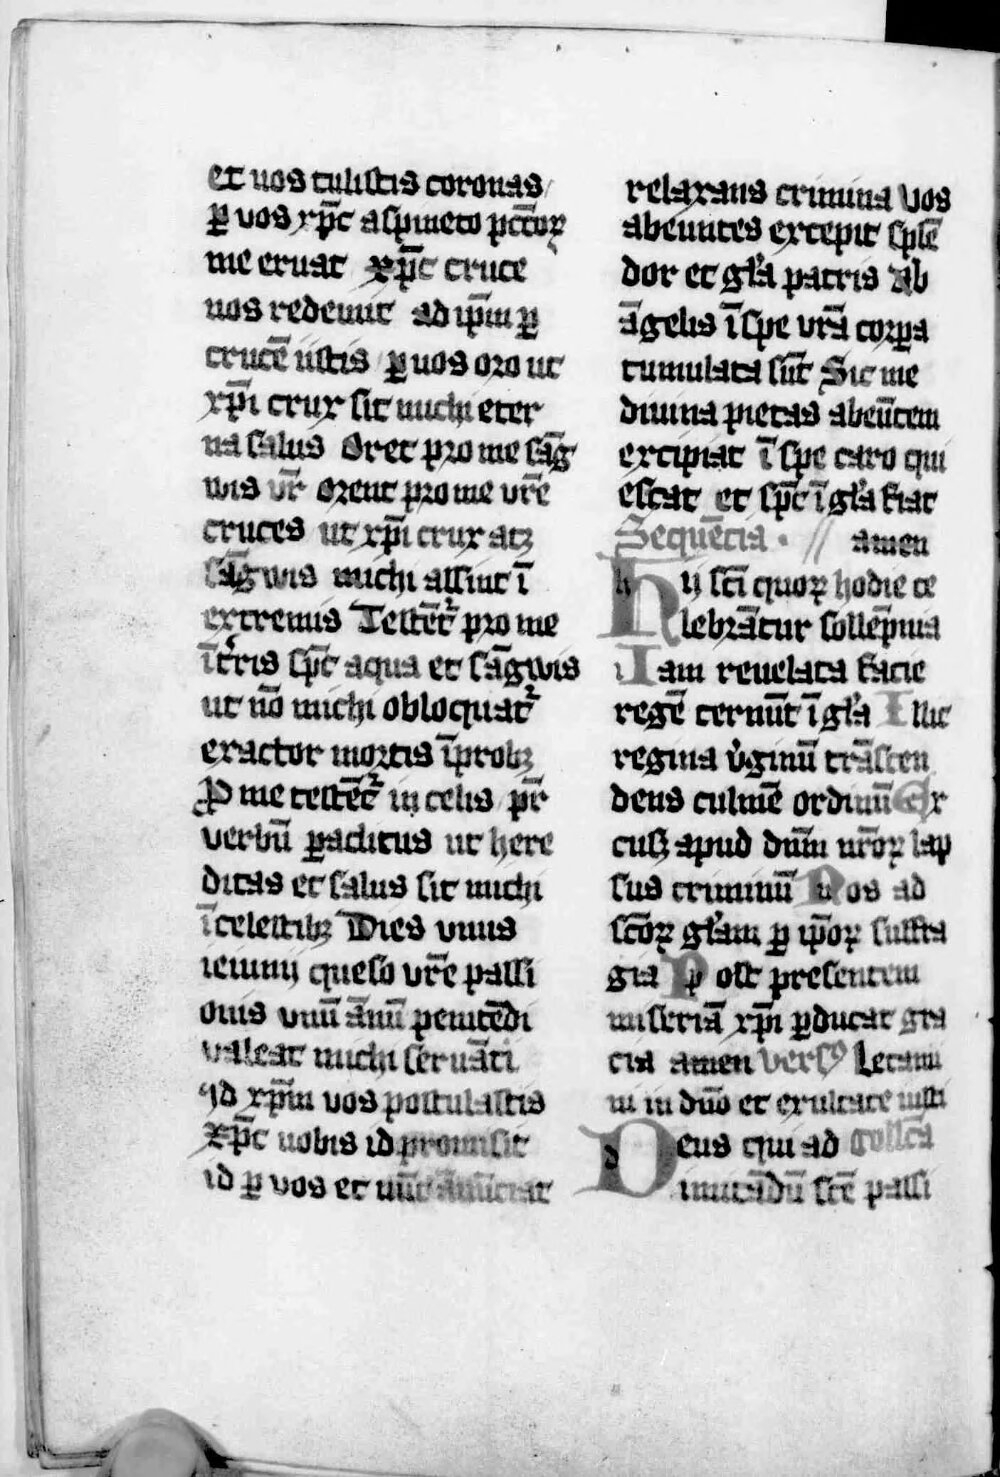 et uos tulistis coronas /
ꝑ vos xp̄c a spineto pctoꝝ
me eruat xp̄c cruce
uos redemit ad ip̄m ꝑ
crucē iistis / ꝑ uos oro ut
xp̄i crux sit michi eter
na salus Oret pro me sāg
wis vr̄ orent pro me vr̄e
cruces ut xp̄i crux atꝫ
sāgwis michi assint ī
extremis Testēt᷑ pro me
ī t᷑ris sp̄c aqua et sāgwis
ut nō michi obloquat᷑
exactor mortis īprobꝫ
P me testēt᷑ in celis / pr̄
verbū ꝑaclitus ut here
ditas et salus sit michi
ī celestibꝫ Dies vnius
ieiunij queso vr̄e passi
onis vnū ānū penitēdi
valeat michi seruāti
Id xp̄m vos postulastis
xp̄c uobis id promisit
id ꝑ vos et
relaxans crimina Vos
abeuntes excepit splē
dor et gl̄a patris Ab
āgelis ī spe vr̄a corꝑa
tumulata sūt Sic me
diuina pietas abeūtem
excipiat ī spe caro qui
escat et sp̄c ī gl̄a fiat
Sequēcia · // amen
Hij sc̄i quoꝝ hodie ce
lebrātur sollēpnia
Iam reuelata facie
regē cernūt ī gl̄a Illic
regina v̓ginū trāscen
dens culmē ordinū Ex
cusꝫ apud dn̄m nr̄oꝝ lap
sus criminū Nos ad
sc̄oꝝ gl̄am ꝑ ip̄oꝝ suffra
gia Post presentem
miseriā xp̄i ꝑducat gra
cia amen versꝰ Letami
ni in dn̄o et exultate iusti
Deus qui ad Coll̄ca
imitādū sc̄e passi